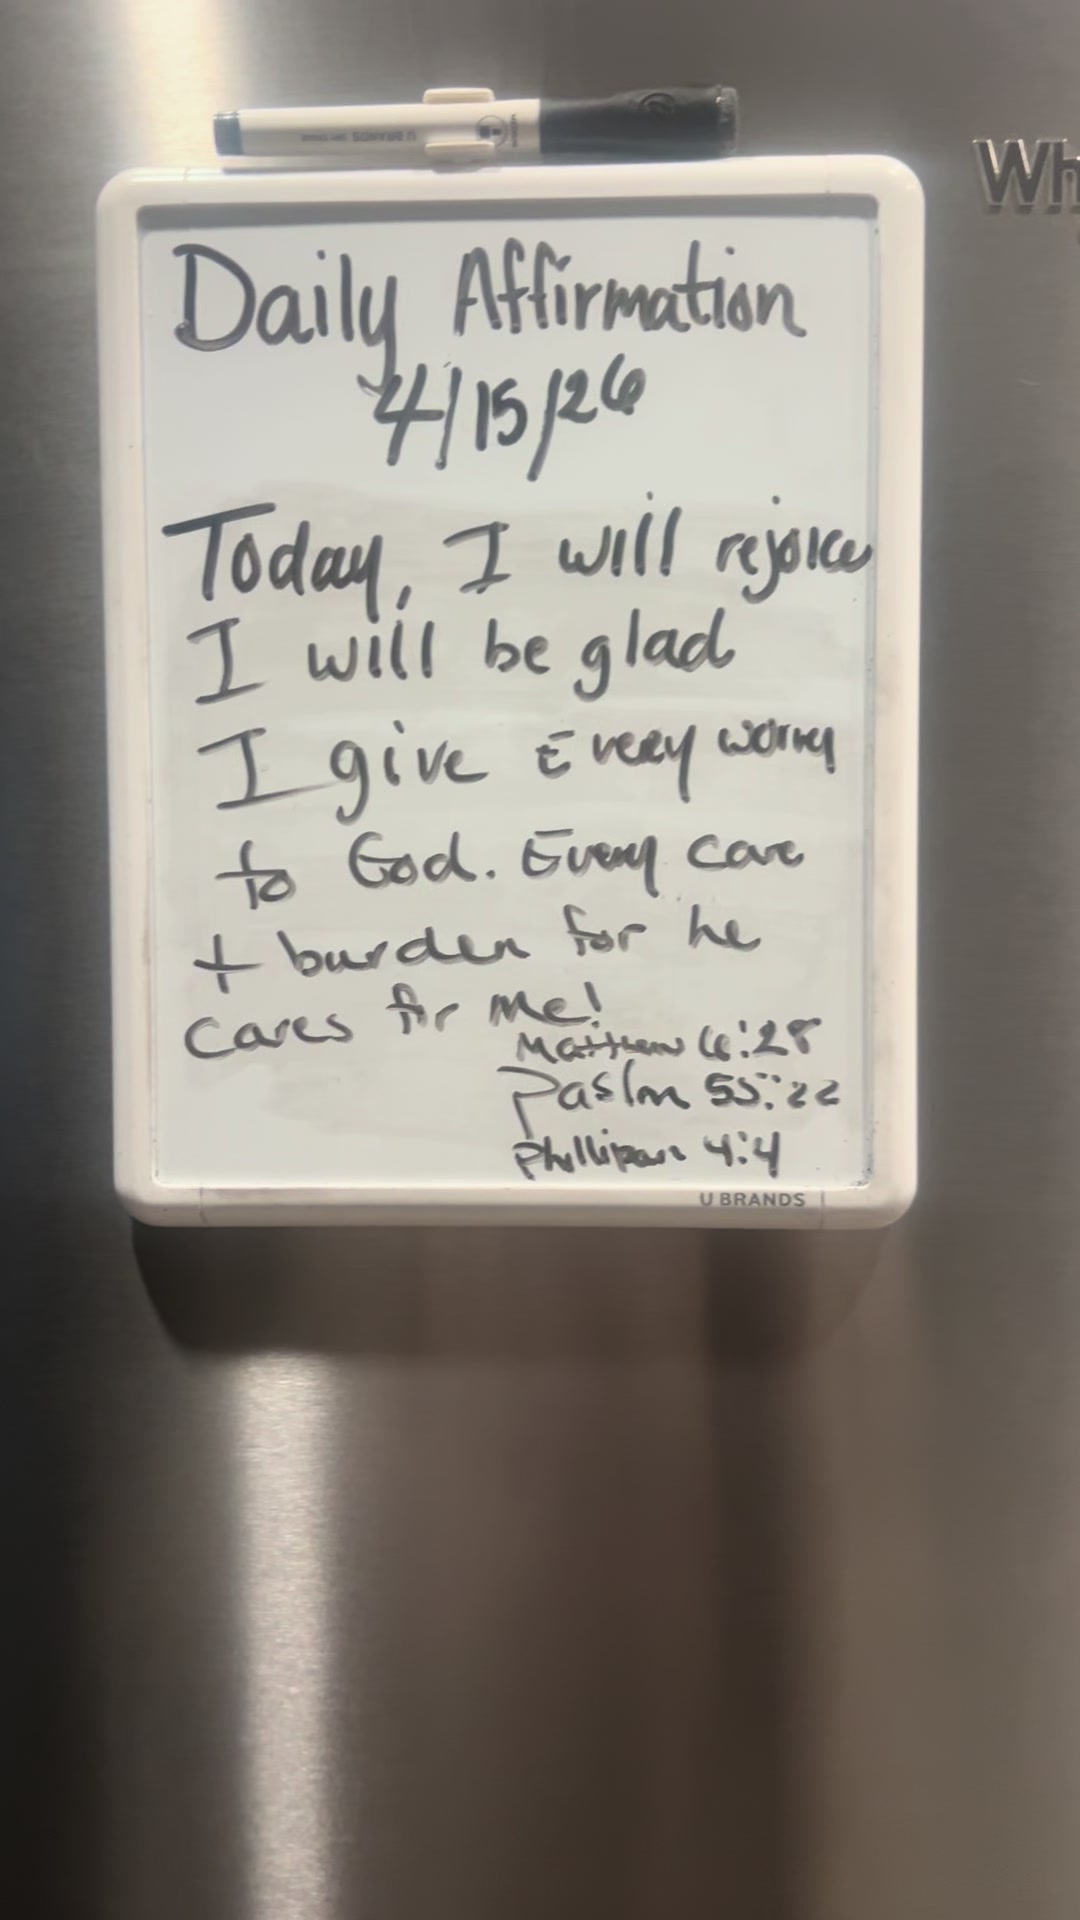 U BRANDS
Wh
Daily Affirmation
4/15/26
Today, I will rejoice
I will be glad
I give Every worry
to God. Every care
+ burden for he
cares for me!
Matthew 6:28
Paslm 55:22
Phillipans 4:4
U BRANDS